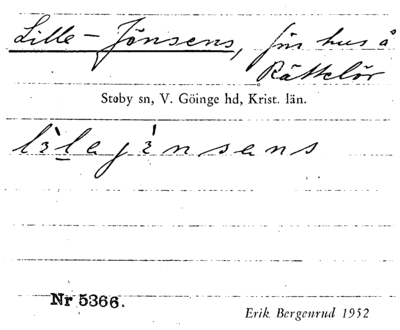 Lille-Jönsens, fm hus å
Rättelöv
Stoby sn, V. Göinge hd, Krist. län.
Nr 5366.
Erik Bergenrud 1952